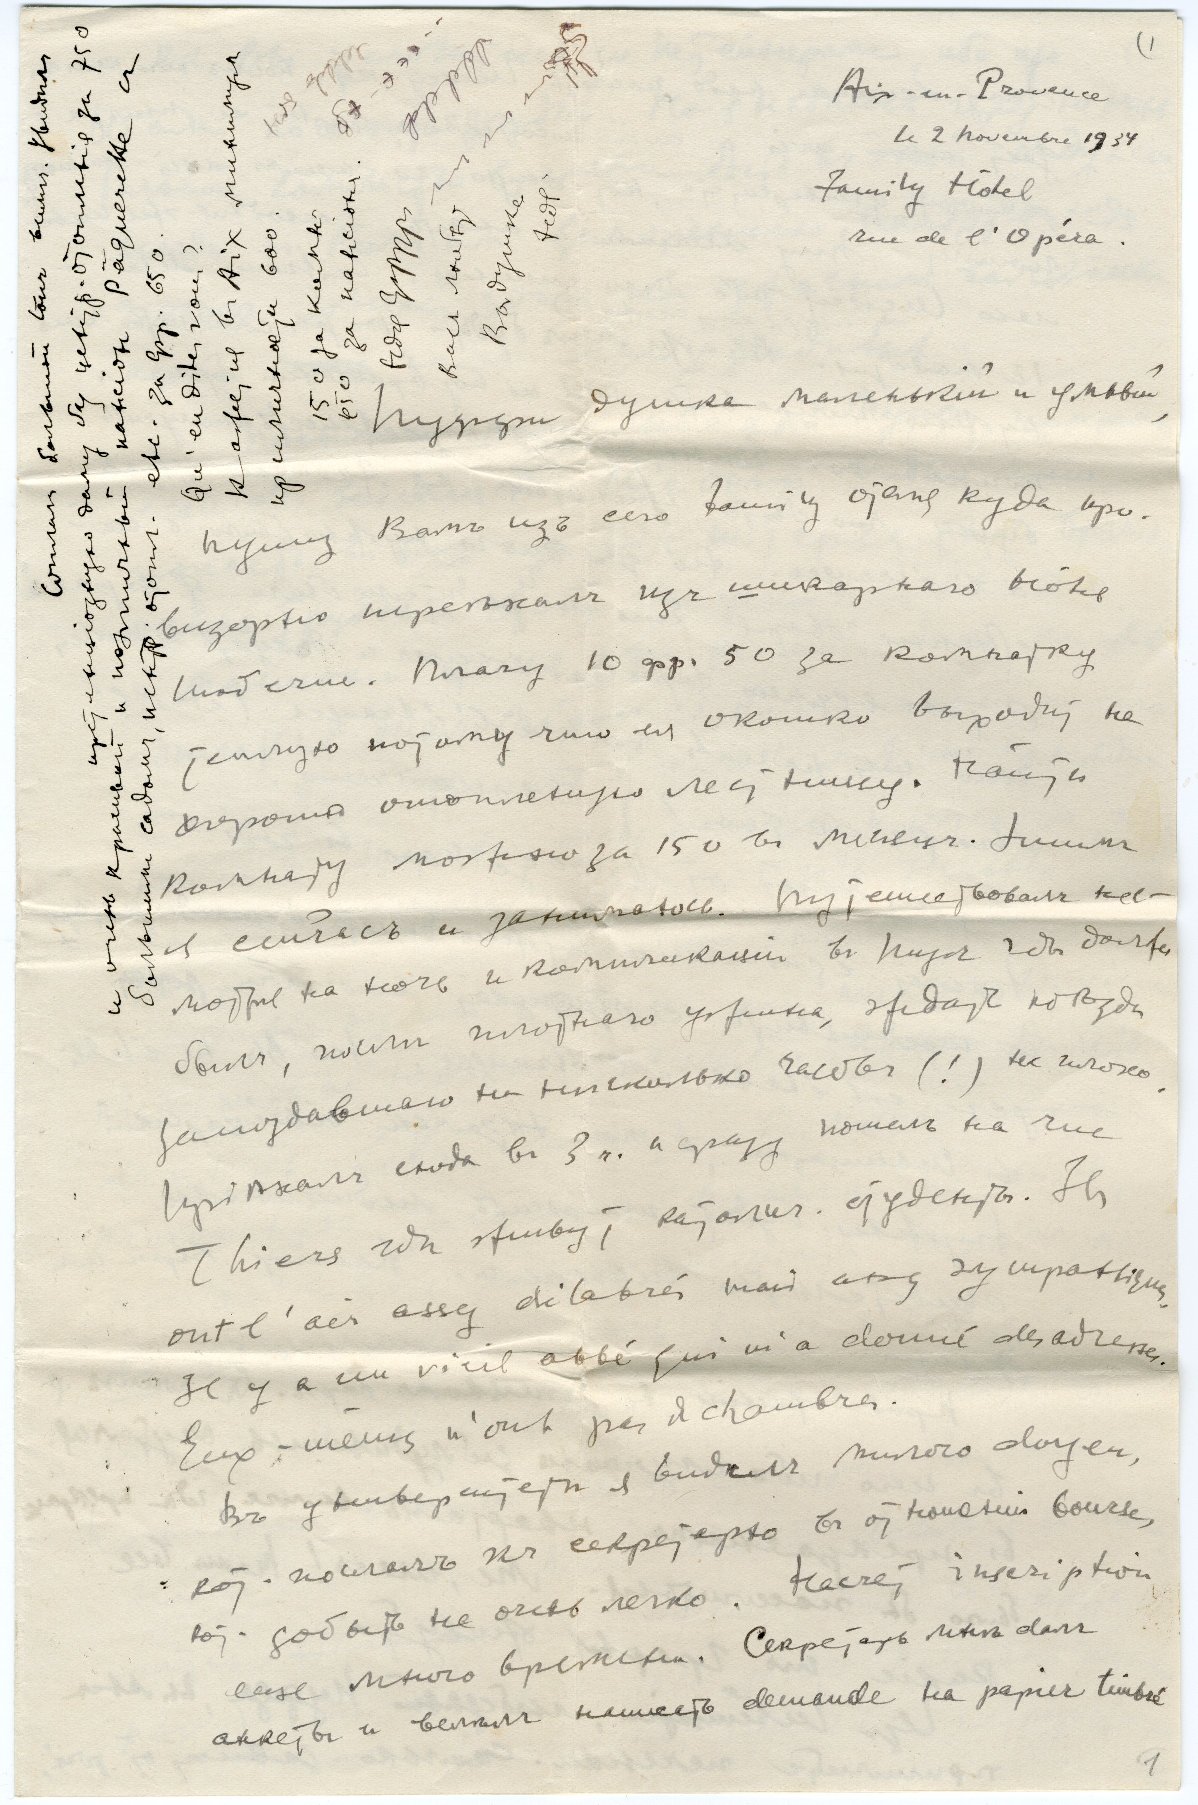 Aix-en-Provence
le 2 novembre 1934
Family Hôtel
rue de l'Opéra.
душка маленькій и умный,
Пишу Вамъ изъ сего Family отеля куда про-
визорно переѣхалъ изъ шикарнаго Hôtel
Moderne. Плачу 10 фр. 50 за комнатку
теплую потому что ея окошко выходитъ на
хорошо отопленную лестницу. Найти
комнату можно за 150 въ мѣсяцъ. Этимъ
я сейчасъ и занимаюсь. Путешествовалъ нес-
мотря на ночь и компликаціи въ гдѣ долженъ
былъ, послѣ плотнаго ужина, ждать поѣзда
запоздавшаго на нѣсколько часовъ (!) не плохо.
Пріѣхалъ сюда въ 3 ч. и сразу пошелъ на rue
Thiers гдѣ живутъ католич. студенты. Ils
ont l'air assez délabrés mais assez sympathiques.
Il y a un vieil abbé qui m'a donné des adresses.
Eux-mêmes n'ont pas de chambres.
Въ университетѣ я видѣлъ милаго doyen,
кот. послалъ къ секретарю въ отношеніи bourse,
кот. добыть не очень легко. Насчет inscription
еще много времени. Секретарь мнѣ далъ
анкеты и велѣлъ написать demande на papier timbré
1
большой tour виллъ. Увидѣлъ
претенціозную даму за 750
и очень красивый и поэтичный пансіонъ Pâquerette съ
большимъ садомъ, центр. отопл. etc. за фр. 650.
Qu'en dites vous?
въ Aix минимум
600.
150 за комнату
450 за пансіонъ.
Васъ любит